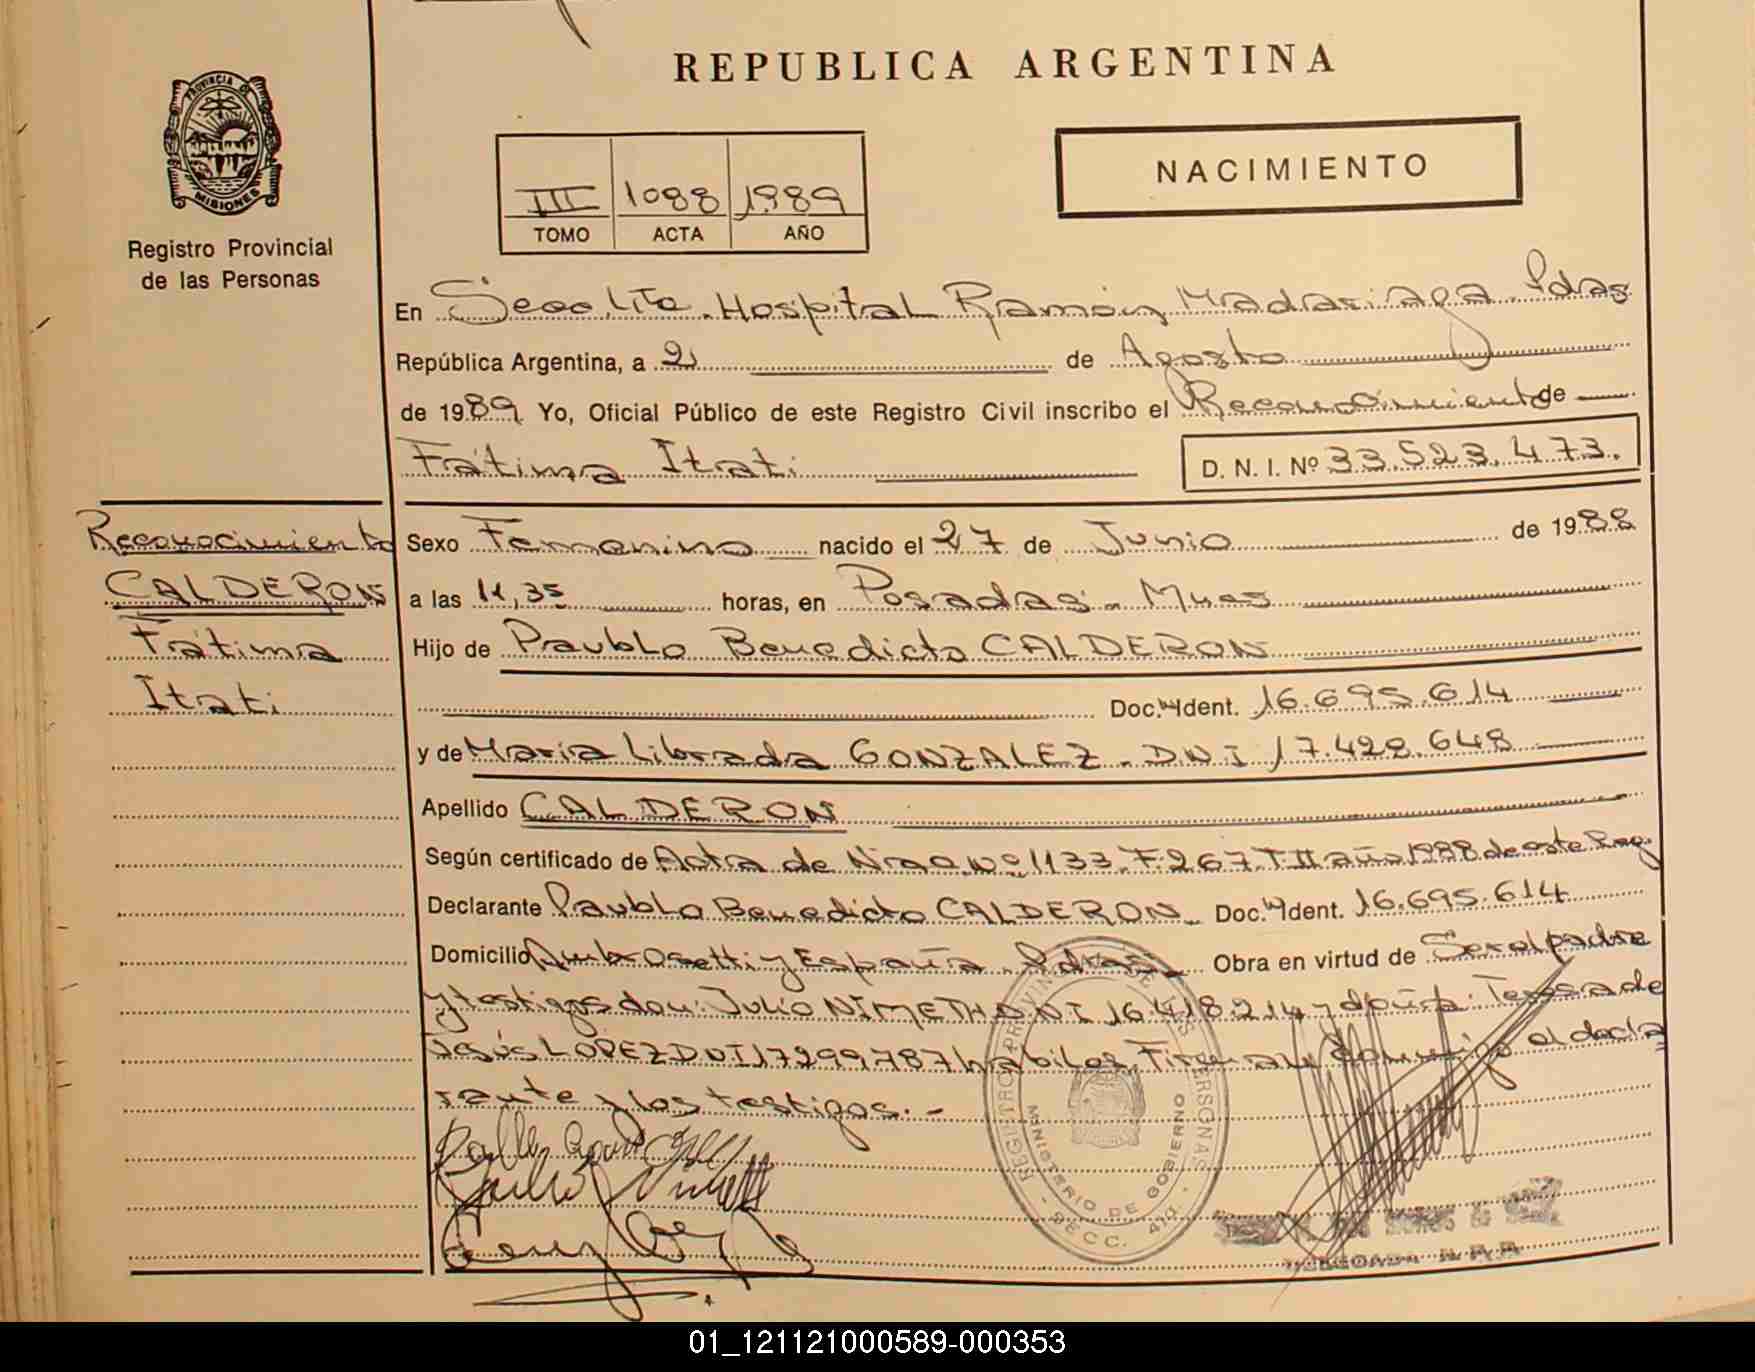 REPUBLICA ARGENTINA
PROVINCIA DE
MISIONES
Registro Provincial
de las Personas
NACIMIENTO
III 1088 1989
TOMO ACTA AÑO
En Secc. 4ta. Hospital Ramón Madariaga. Pdas
República Argentina, a 2 de Agosto
de 1989 Yo, Oficial Público de este Registro Civil inscribo el Reconocimiento de
Fátima Itati
D. N. I. Nº 33.523.473.
Reconocimiento
CALDERON
Fátima
Itati
Sexo Femenino nacido el 27 de Junio de 1988
a las 11,35 horas, en Posadas. Mnes
Hijo de Paublo Benedicto CALDERON
Doc. Ident. 16.695.614
y de María Librada GONZALEZ. DNI 17.428.648
Apellido CALDERON
Según certificado de Acta de Nac Nº 1133. F. 267. T. II año 1988 de este Reg.
Declarante Paublo Benedicto CALDERON Doc. Ident. 16.695.614
Domicilio Ambrosetti y España. Pdas. Obra en virtud de Ser el padre
y testigos don: Julio NIMETH DNI 16.418.214 y doña: Teresa de
Jesús LOPEZ DNI 17299787 hábiles. Firman conmigo el decla
rante y los testigos. -
REGISTRO PROVINCIAL DE LAS PERSONAS
MINISTERIO DE GOBIERNO
SECC. 4ta.
DELEGADA R.P.P.
01_121121000589-000353